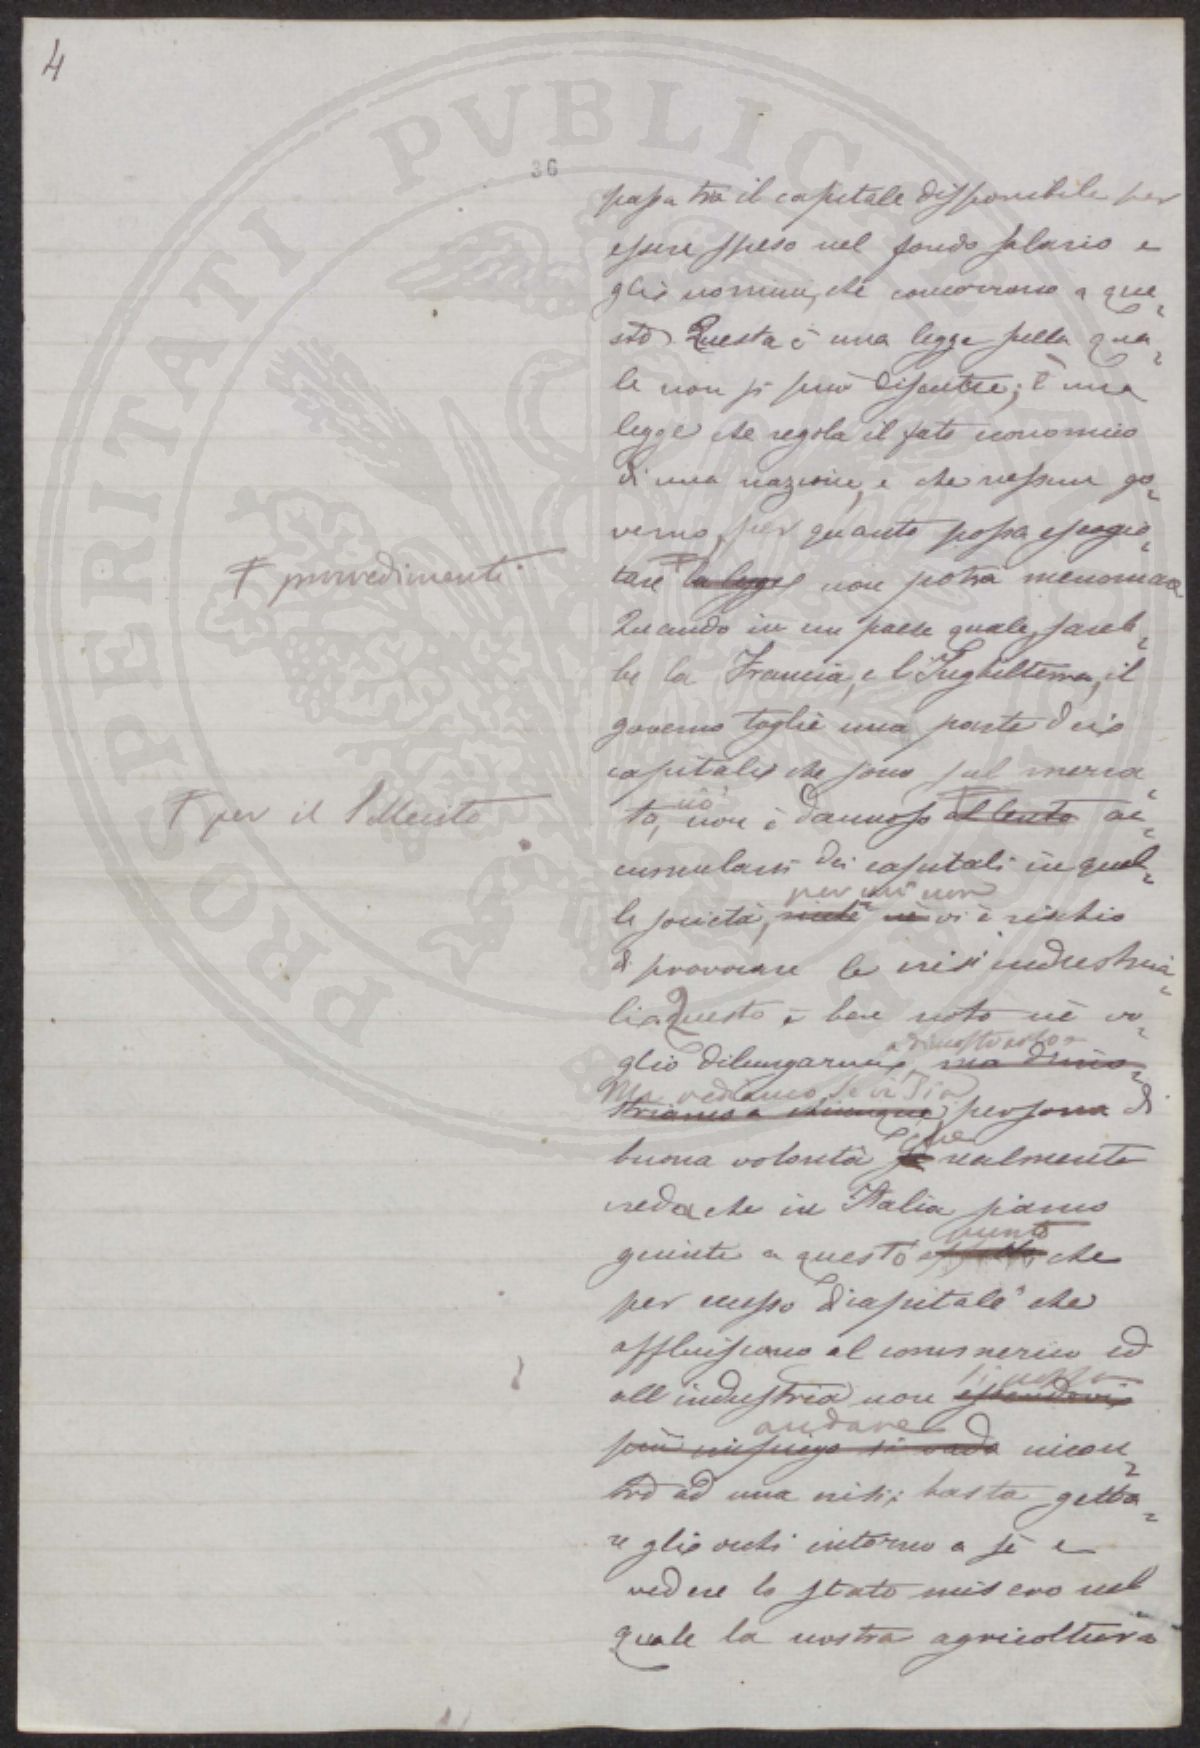 4
36
PROSPERITATI PUBLICAE
passa tra il capitale disponibile per
essere speso nel fondo salario e
gli uomini, che concorrono a que-
sto. Questa è una legge sulla qua-
le non si può discutere; è una
legge che regola il fato economico
di una nazione, e che nessun go-
verno, per quanto possa escogi-
tare la legge non potrà menomare
+ provvedimenti
Quando in un paese quale sareb-
be la Francia, e l'Inghilterra, il
governo toglie una parte dei
capitali che sono sul merca-
to, ciò non è dannoso al lento ac-
+ per il
cumularsi dei capitali in quel-
le società, per cui non vi è rischio
di provocare le crisi industria-
li. Questo è ben noto nè vo-
glio dilungarmi a dimostrarlo ma dimo-
Ma vediamo se vi sia
striamo a chiunque persona di
buona volontà che se realmente
creda che in Italia siamo
giunti a questo punto che
per eccesso di capitale che
affluiscono al commercio ed
all'industria non si possa
andare
più impiego si vada incon-
tro ad una crisi; basta getta-
re gli occhi intorno a sè e
vedere lo stato misero nel
quale la nostra agricoltura